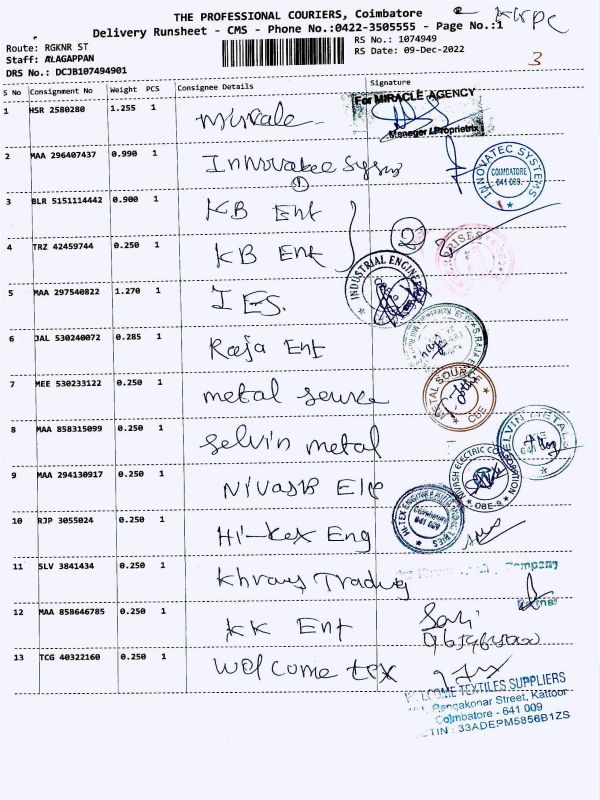 THE PROFESSIONAL COURIERS, Coimbatore
Delivery Runsheet - CMS - Phone No.:0422-3505555 - Page No.:1
Route: RGKNR ST
RS No.: 1074949
Staff: ALAGAPPAN
RS Date: 09-Dec-2022
DRS No.: DCJB107494901
3
S No Consignment No Weight PCS Consignee Details Signature
1 HSR 2580280 1.255 1
For MIRACLE AGENCY
Manager / Proprietrix
2 MAA 296407437 0.990 1 Innovatec System
1
INNOVATEC SYSTEMS
COIMBATORE
641 009
3 BLR 5151114442 0.900 1 KB Ent
2
4 TRZ 42459744 0.250 1 KB Ent
INDUSTRIAL ENGINEER
5 MAA 297540822 1.270 1 IES.
6 JAL 530240072 0.285 1 Raja Ent
7 MEE 530233122 0.250 1 metal source
METAL SOURCE
CBE
8 MAA 858315099 0.250 1 selvin metal
SELVIN METALS
9 MAA 294130917 0.250 1 Nivash Ele
NIVASH ELECTRIC CORPORATION
CBE-9
10 RJP 3055024 0.250 1 Hi-tex Eng
HI-TEX ENGINEERING INDUSTRIES
COIMBATORE
641 009
11 SLV 3841434 0.250 1 Trading
Company
Partner
12 MAA 858646785 0.250 1 KK Ent
13 TCG 40322160 0.250 1 welcome tex
WELCOME TEXTILES SUPPLIERS
Rangakonar Street, Kattoor
Coimbatore - 641 009
GSTIN : 33ADEPM5856B1ZS